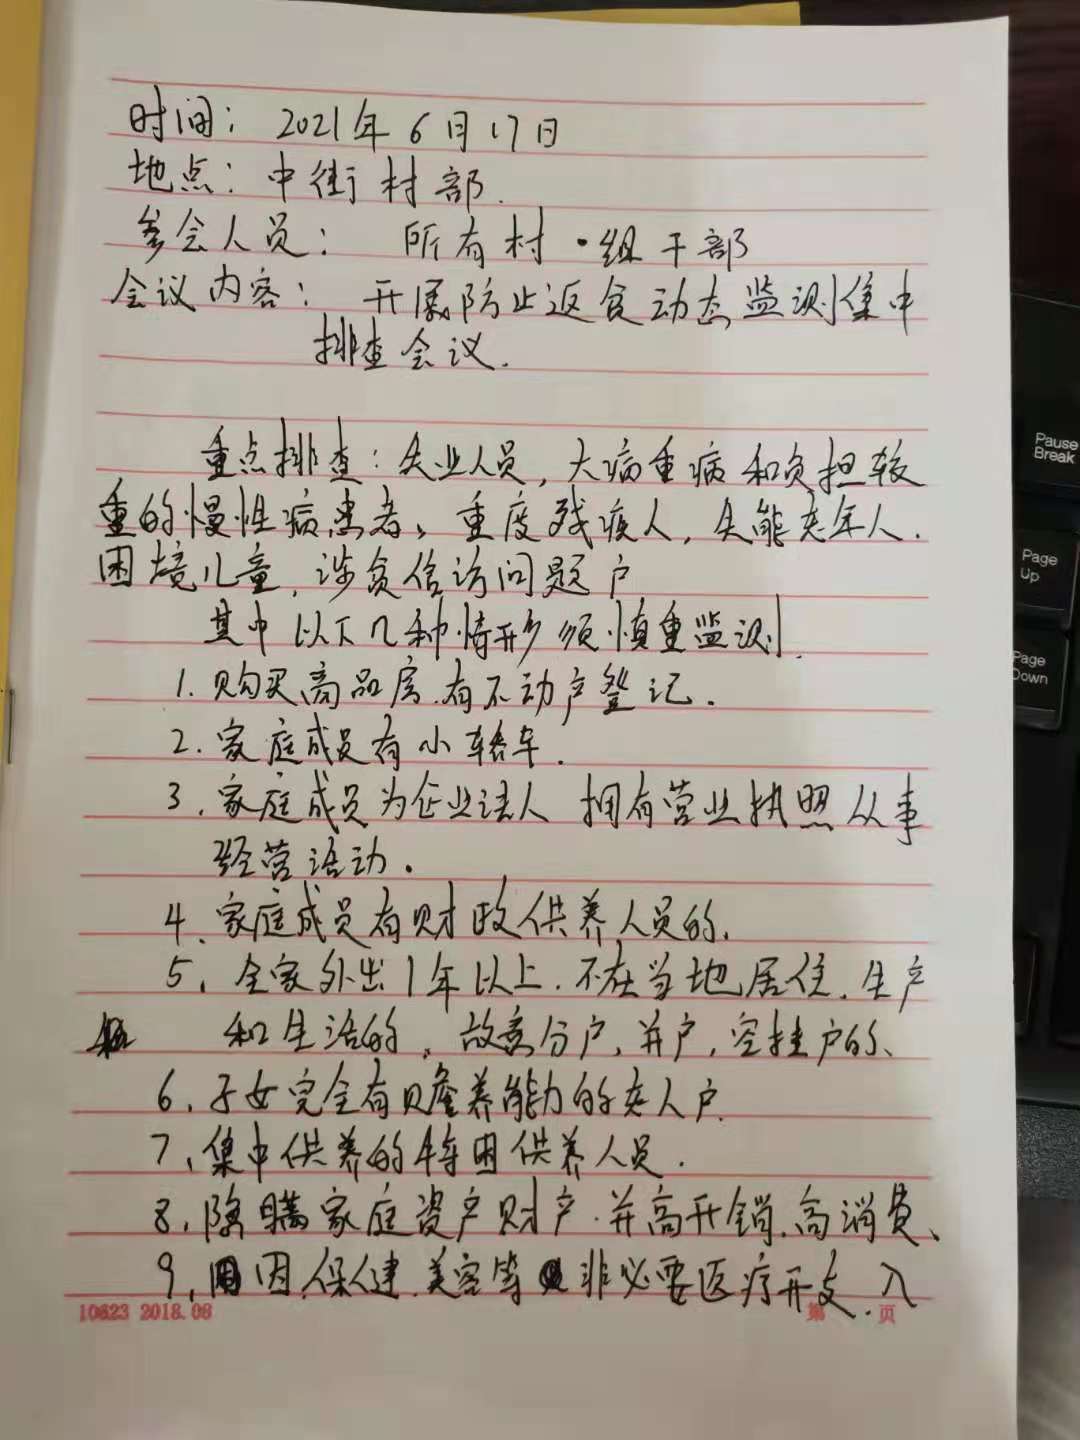 时间：2021年6月17日
地点：中街村部.
参会人员： 所有村·组干部
会议内容： 开展防止返贫动态监测集中
排查会议.
重点排查：失业人员，大病重病和负担较
重的慢性病患者、重度残疾人，失能老年人.
困境儿童，涉贫信访问题户
其中以下几种情形须慎重监测.
1.购买商品房.有不动产登记.
2.家庭成员有小轿车.
3.家庭成员为企业法人 拥有营业执照从事
经营活动.
4、家庭成员有财政供养人员的.
5、全家外出1年以上.不在当地居住.生产
和生活的，故意分户，并户，空挂户的、
6、子女完全有赡养能力的老人户.
7、集中供养的特困供养人员.
8、隐瞒家庭资产财产.并高开销.高消费、
9、因.保健.美容等非必要医疗开支.入
10623 2018.08
第 页
Pause
Break
Page
Up
Page
Down